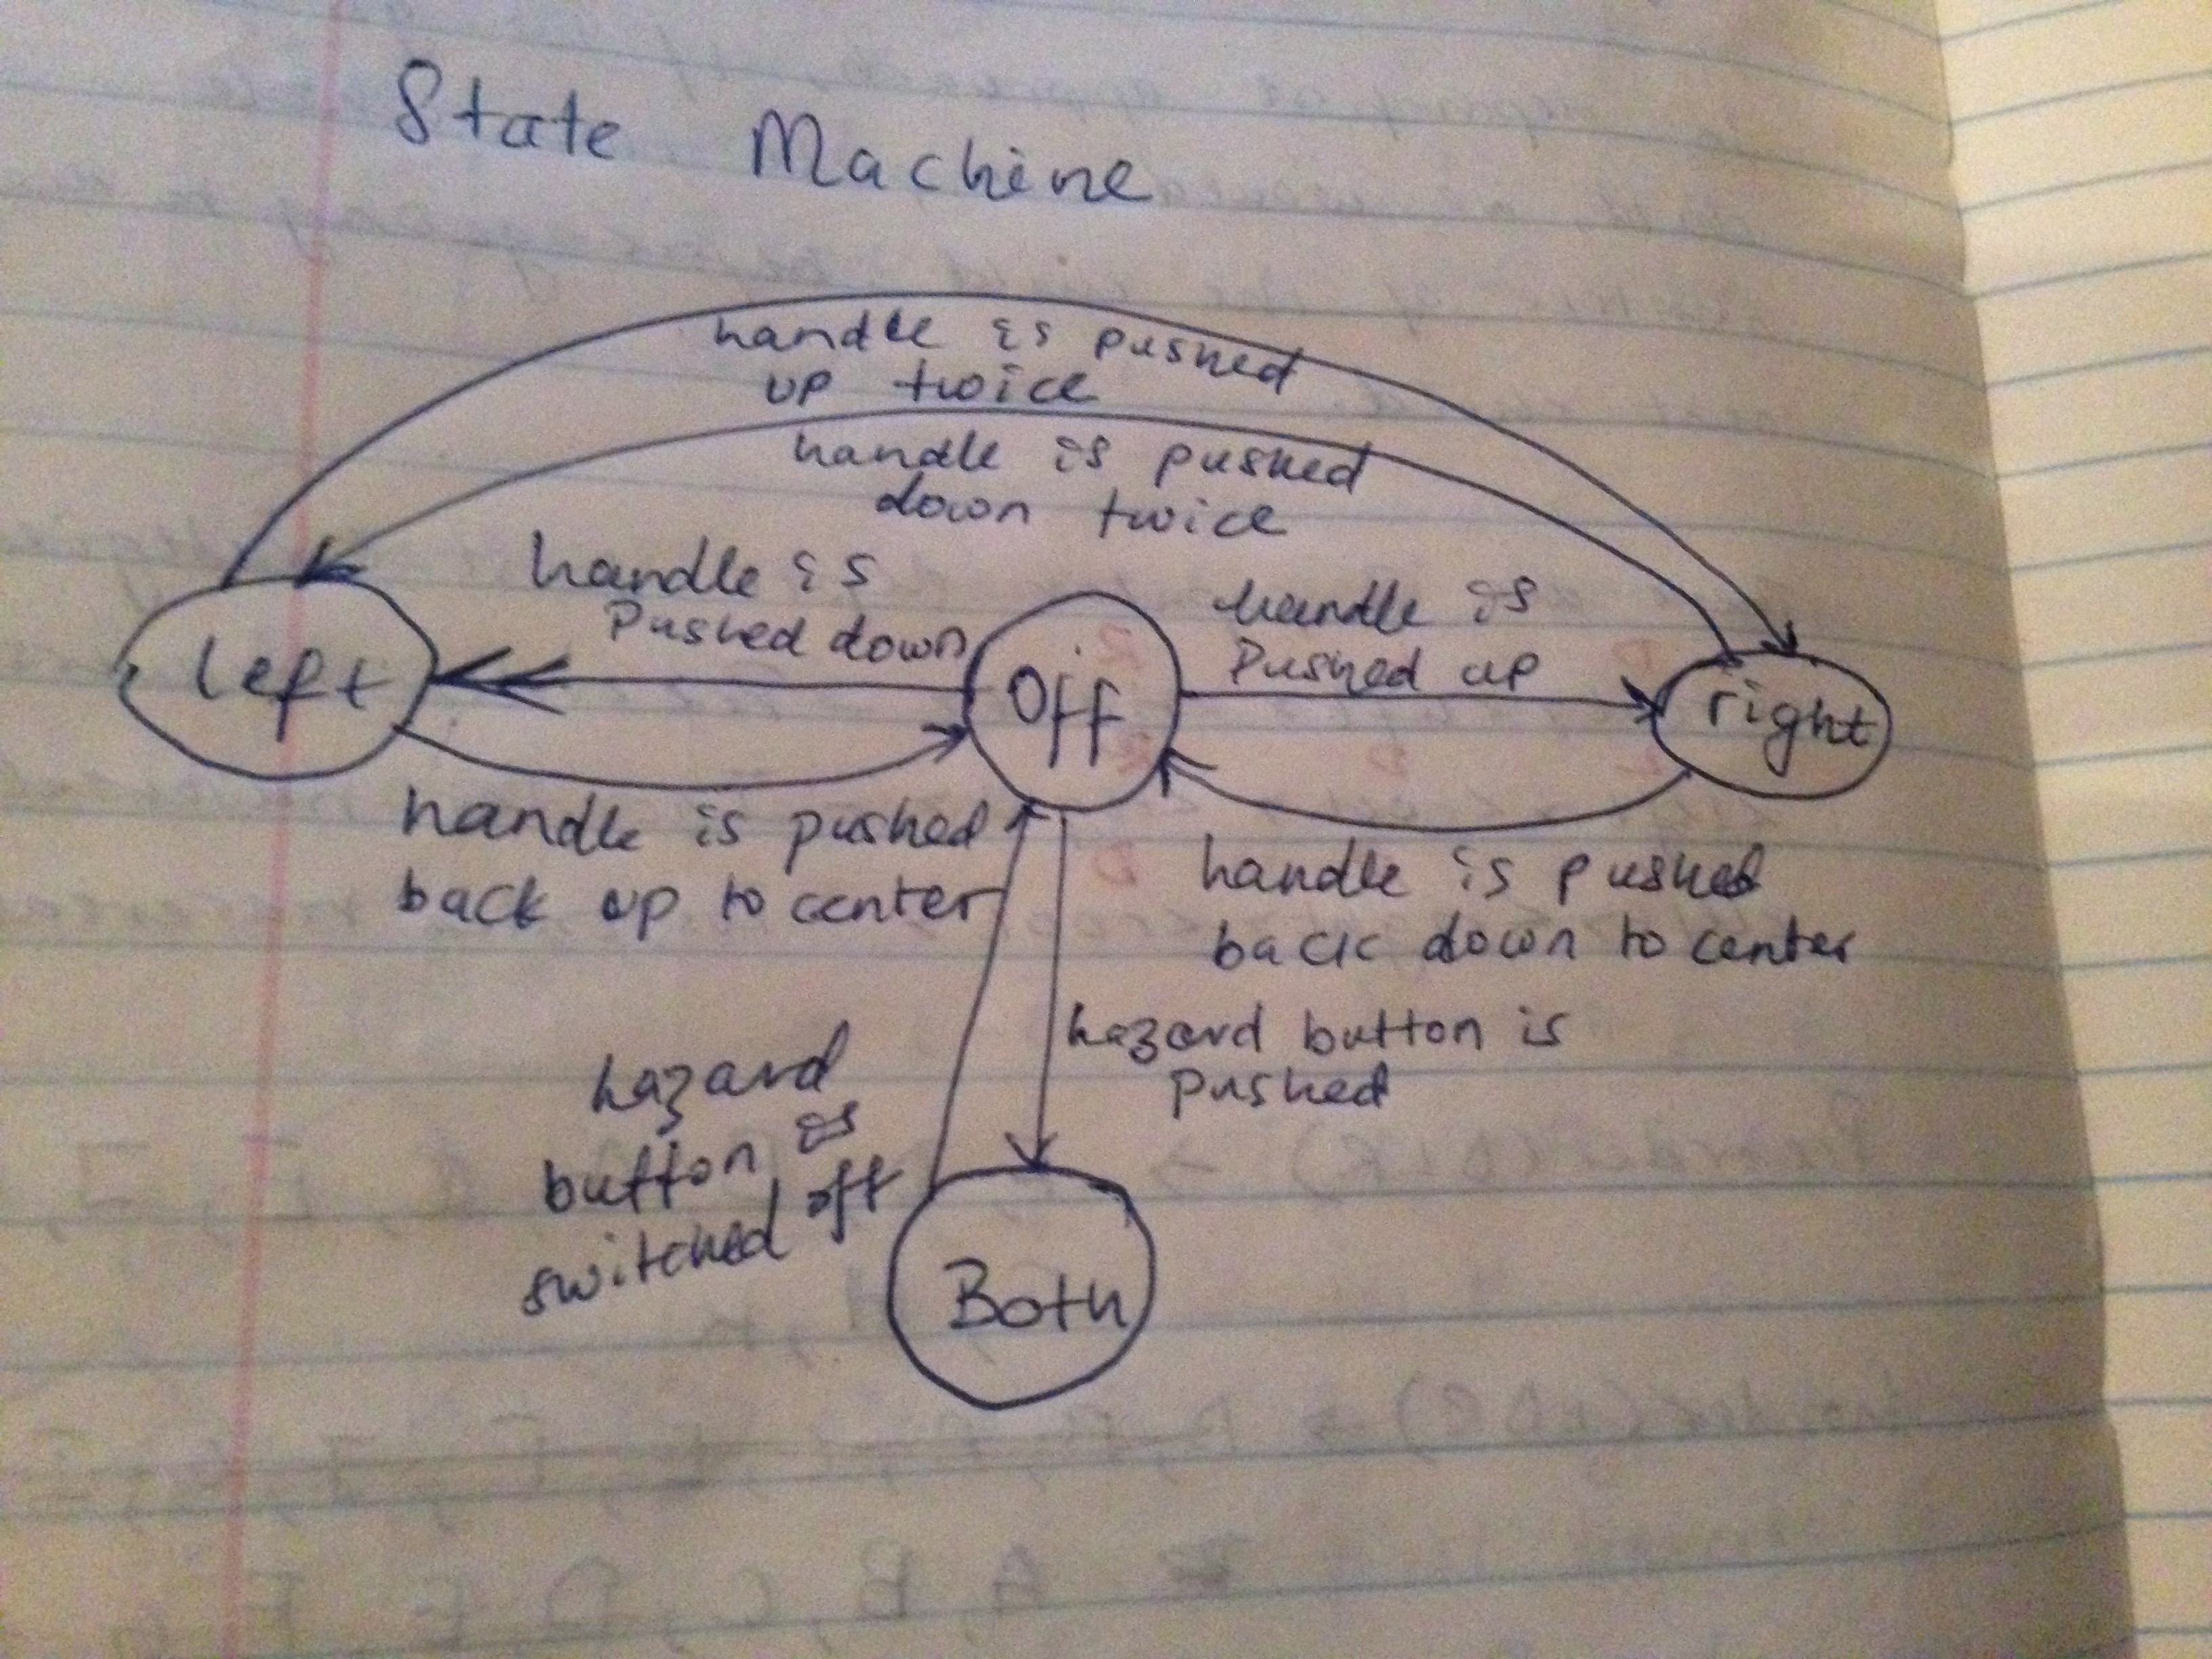 State Machine
handle is pushed
up twice
handle is pushed
down twice
handle is
pushed down
handle is
pushed up
left
Off
right
handle is pushed
back up to center
handle is pushed
back down to center
hazard
button is
switched off
hazard button is
pushed
Both